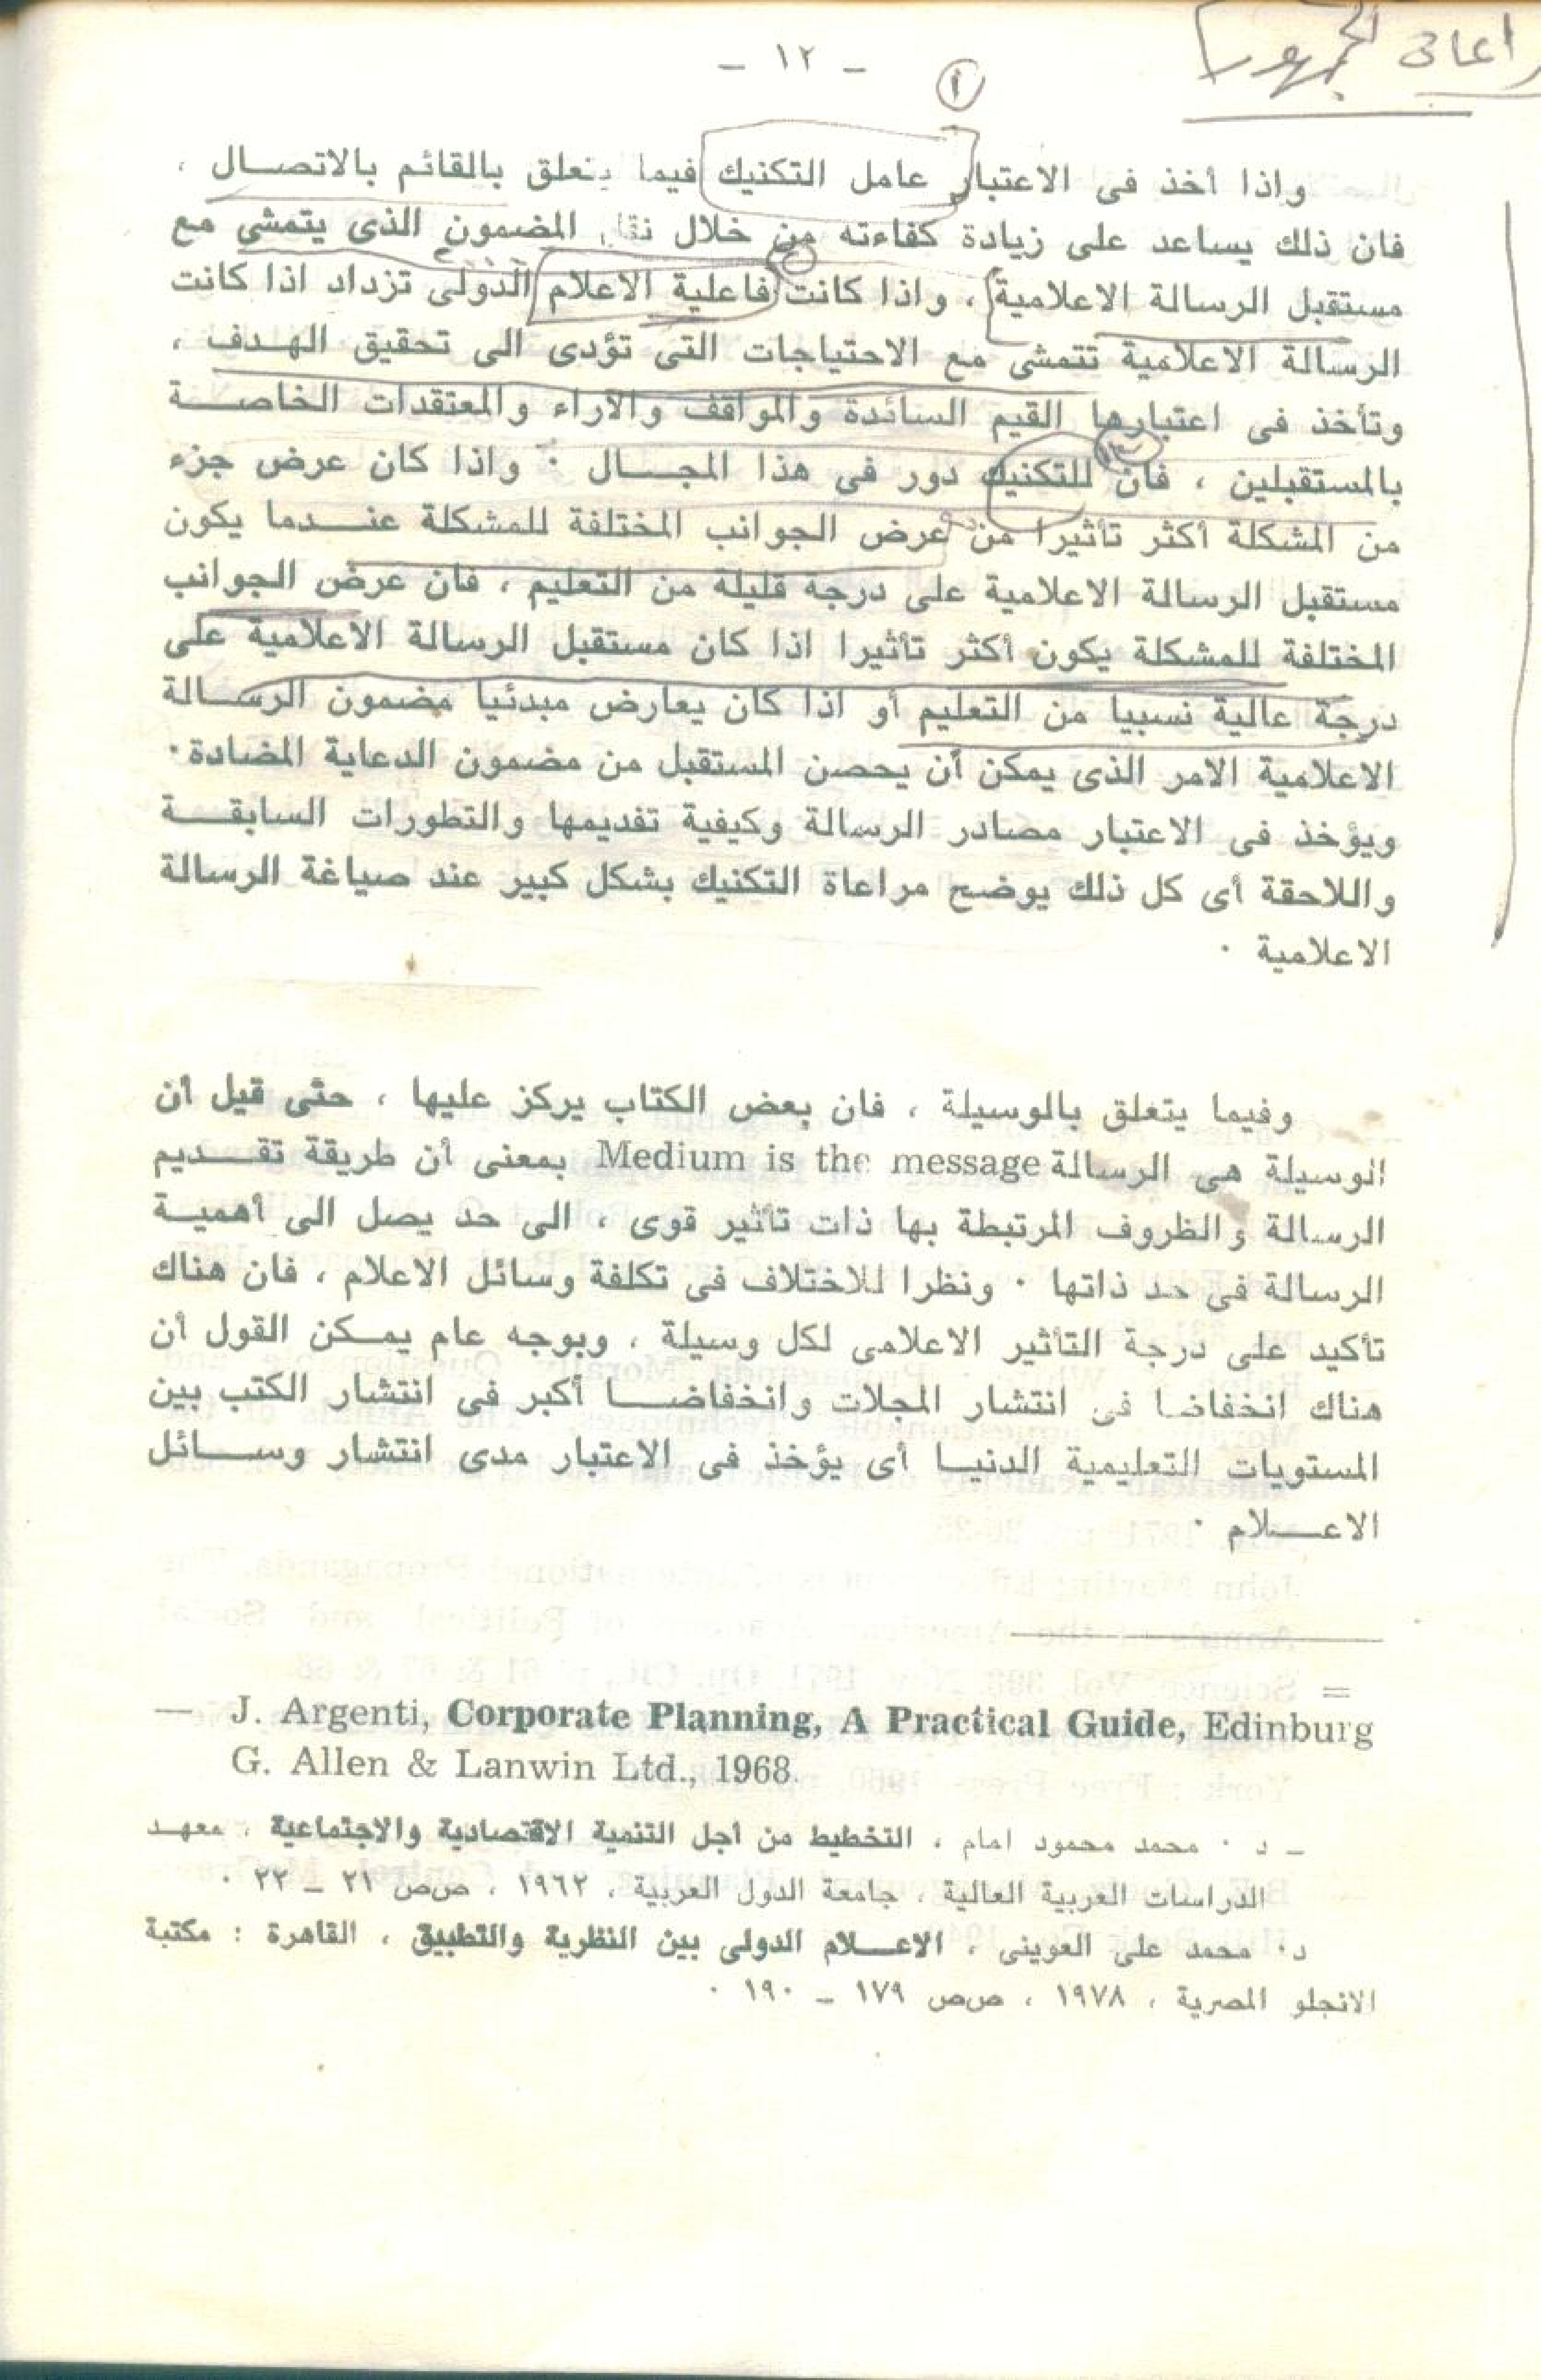 - ١٢ -
١
واذا أخذ فى الاعتبار عامل التكنيك فيما يتعلق بالقائم بالاتصــال ،
فان ذلك يساعد على زيادة كفاءته من خلال نقل المضمون الذى يتمشى مع
مستقبل الرسالة الاعلامية ، واذا كانت فاعلية الاعلام الدولى تزداد اذا كانت
الرسالة الاعلامية تتمشى مع الاحتياجات التى تؤدى الى تحقيق الهـدف ،
وتأخذ فى اعتبارها القيم السائدة والمواقف والآراء والمعتقدات الخاصــة
بالمستقبلين ، فان للتكنيك دور فى هذا المجــال ٠ واذا كان عرض جزء
من المشكلة أكثر تأثيرا من عرض الجوانب المختلفة للمشكلة عنــدما يكون
مستقبل الرسالة الاعلامية على درجة قليلة من التعليم ، فان عرض الجوانب
المختلفة للمشكلة يكون أكثر تأثيرا اذا كان مستقبل الرسالة الاعلامية على
درجة عالية نسبيا من التعليم أو اذا كان يعارض مبدئيا مضمون الرســالة
الاعلامية الامر الذى يمكن أن يحصن المستقبل من مضمون الدعاية المضادة٠
ويؤخذ فى الاعتبار مصادر الرسالة وكيفية تقديمها والتطورات السابقــة
واللاحقة أى كل ذلك يوضح مراعاة التكنيك بشكل كبير عند صياغة الرسالة
الاعلامية ٠
وفيما يتعلق بالوسيلة ، فان بعض الكتاب يركز عليها ، حتى قيل أن
الوسيلة هى الرسالة Medium is the message بمعنى أن طريقة تقــديم
الرسالة والظروف المرتبطة بها ذات تأثير قوى ، الى حد يصل الى أهميــة
الرسالة فى حد ذاتها ٠ ونظرا للاختلاف فى تكلفة وسائل الاعلام ، فان هناك
تأكيد على درجة التأثير الاعلامى لكل وسيلة ، وبوجه عام يمـكن القول أن
هناك انخفاضا فى انتشار المجلات وانخفاضــا أكبر فى انتشار الكتب بين
المستويات التعليمية الدنيــا أى يؤخذ فى الاعتبار مدى انتشار وســائل
الاعــلام ٠
=
— J. Argenti, Corporate Planning, A Practical Guide, Edinburg
G. Allen & Lanwin Ltd., 1968.
ـ د ٠ محمد محمود امام ، التخطيط من أجل التنمية الاقتصادية والاجتماعية ، معهـد
الدراسات العربية العالية ، جامعة الدول العربية ، ١٩٦٢ ، صص ٢١ ـ ٢٢ ٠
د٠ محمد على العوينى ، الاعــلام الدولى بين النظرية والتطبيق ، القاهرة : مكتبة
الانجلو المصرية ، ١٩٧٨ ، صص ١٧٩ ـ ١٩٠ ٠